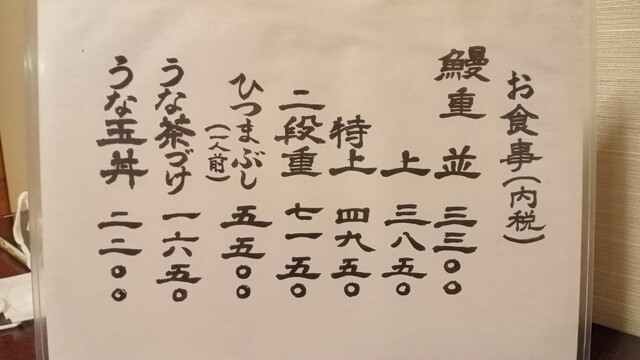 お食事(内税)
鰻重 並 三三〇〇
上 三八五〇
特上 四九五〇
二段重 七一五〇
ひつまぶし(一人前) 五五〇〇
うな茶づけ 一六五〇
うな玉丼 二二〇〇